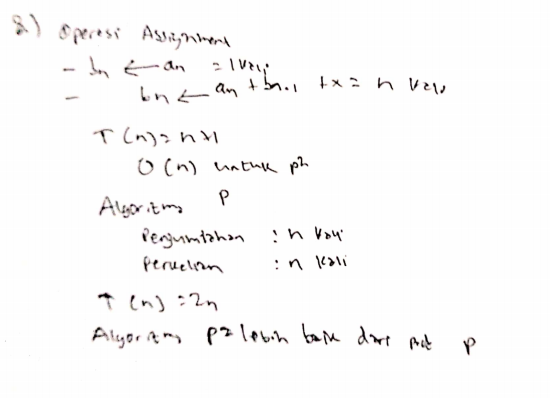 2) Operasi Assignment
- bn ← an = 1 kali
- bn ← an + bn.1 * x = n kali
T (n) = n+1
O (n) untuk p2
Algoritma P
Penjumlahan : n kali
Perkalian : n kali
T (n) = 2n
Algoritma p2 lebih baik dari p